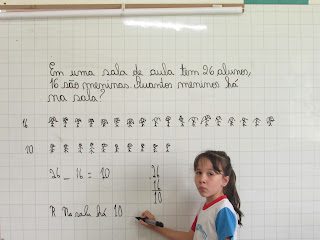 Em uma sala de aula tem 26 alunos,
16 são meninas. Quantos meninos há
na sala?
16
10
26 - 16 = 10
26
16
10
R. Na sala há 10